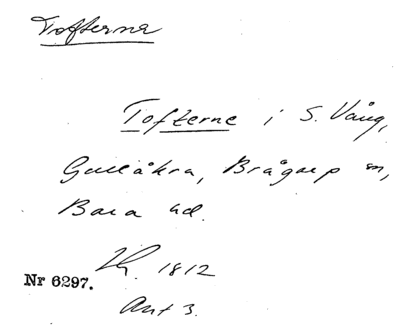 Tofterna
Tofterne i S. Vång,
Gullåkra, Brågarp sn,
Bara hd.
1812
Nr 6297.
Akt 3.